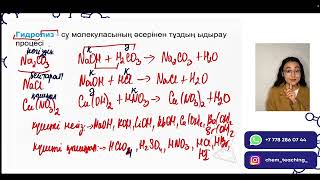 Гидролиз - су молекуласының әсерінен тұздың ыдырау процесі
Na₂CO₃ NaOH + H₂CO₃ → Na₂CO₃ + H₂O
NaCl NaOH + HCl → NaCl + H₂O
Cu(NO₃)₂ Cu(OH)₂ + HNO₃ → Cu(NO₃)₂ + H₂O
күшті негіз → NaOH, KOH, LiOH,
күшті қышқыл → HClO₄, H₂SO₄, HNO₃, HCl, HBr, HI
+7 778 286 07 44
chem_teaching_